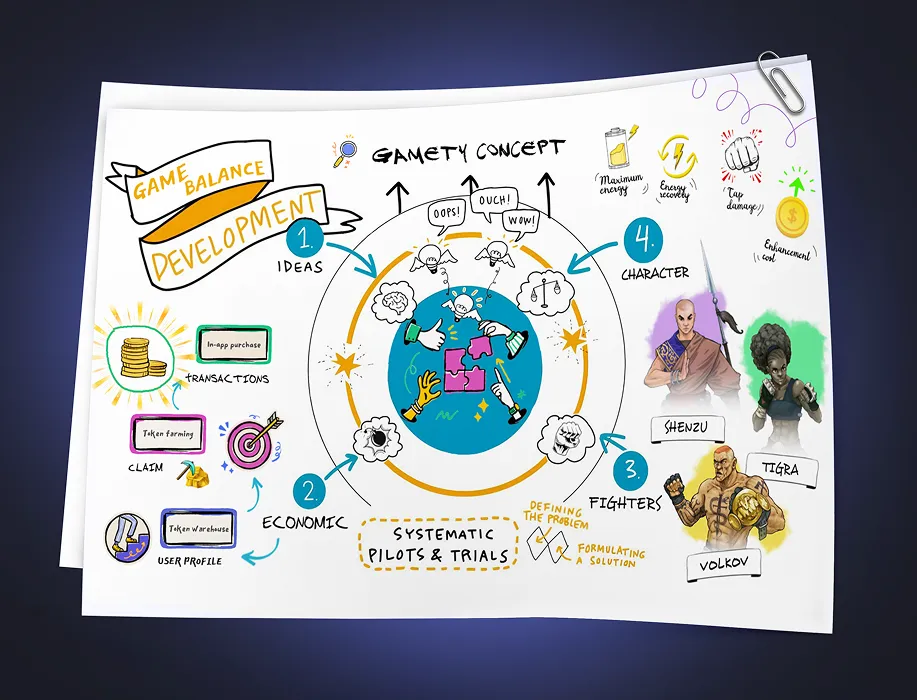 GAME
BALANCE
DEVELOPMENT
GAMETY CONCEPT
OOPS!
OUCH!
WOW!
1.
IDEAS
4.
CHARACTER
Maximum
energy
Energy
recovery
Tap
damage
Enhancement
cost
In-app purchase
TRANSACTIONS
Token farming
CLAIM
Token Warehouse
USER PROFILE
2.
ECONOMIC
3.
FIGHTERS
SYSTEMATIC
PILOTS & TRIALS
DEFINING
THE PROBLEM
FORMULATING
A SOLUTION
SHENZU
TIGRA
VOLKOV